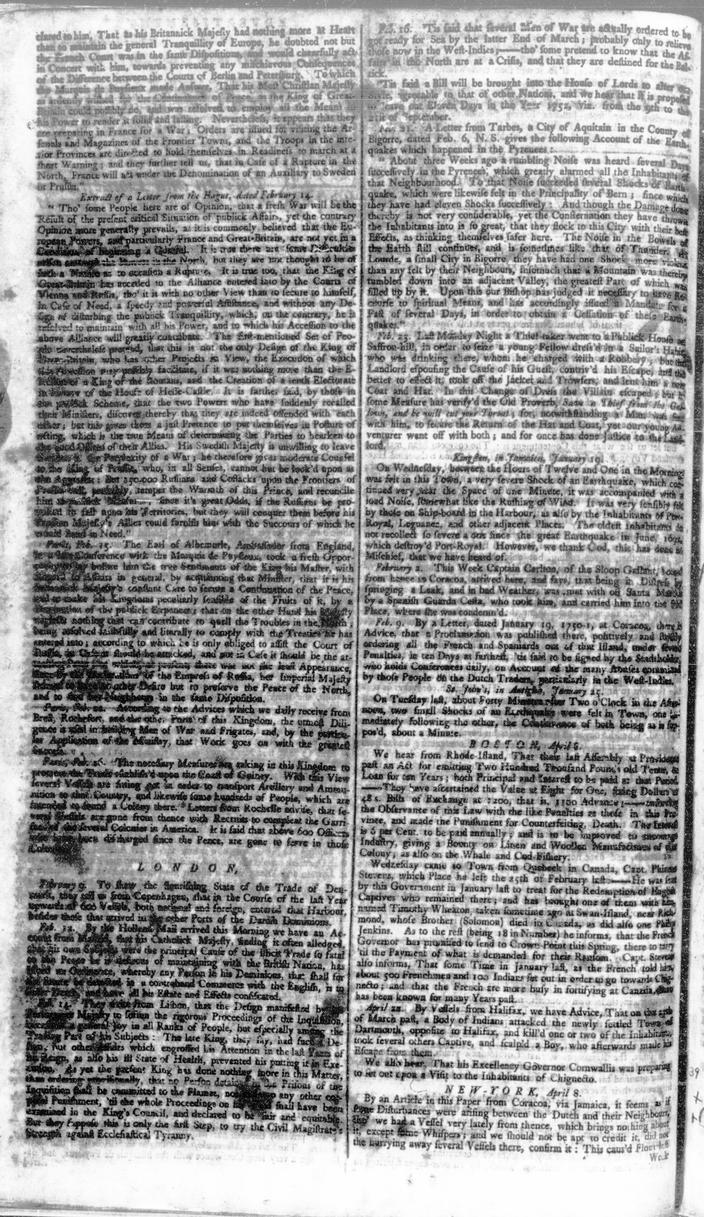 clared to him, That as his Britannick Majesty had nothing more at Heart
than to maintain the general Tranquillity of Europe, he doubted not but
the French Court was in the same Dispositions, and would chearfully act
in Concert with him, towards preventing any mischievous Consequences
of the Difference between the Courts of Berlin and Petersburg. To which
the Marquis de Puysieux made Answer, That his Most Christian Majesty
his Power to render it solid and lasting. Nevertheless, it appears that they
are preparing in France for a War; Orders are issued for visiting the Ar-
senals and Magazines of the Frontier Towns, and the Troops in the inte-
rior Provinces are directed to hold themselves in Readiness to march at a
short Warning; and they further tell us, that in Case of a Rupture in the
North, France will act under the Denomination of an Auxiliary to Sweden
or Prussia.
Extract of a Letter from the Hague, dated February 14.
" Tho' some People here are of Opinion, that a fresh War will be the
Result of the present critical Situation of publick Affairs, yet the contrary
Opinion more generally prevails, as it is commonly believed that the Eu-
ropean Powers, and particularly France and Great-Britain, are not yet in a
Condition of beginning a Quarrel. It is true there are some
in the North, but they are not thought to be of
such a Nature as to occasion a Rupture. It is true too, that the King of
Great-Britain has acceded to the Alliance entered into by the Courts of
Vienna and Russia, tho' it is with no other View than to secure to himself,
in Case of Need, a speedy and powerful Assistance, and without any De-
sign of disturbing the publick Tranquility, which, on the contrary, he is
resolved to maintain with all his Power, and to which his Accession to the
above Alliance will greatly contribute. The fore-mentioned Set of Peo-
ple nevertheless pretend, that this is not the only Design of the King of
Great-Britain, who has other Projects in View, the Execution of which
this Accession may possibly facilitate, if it was nothing more than the E-
lection of a King of the Romans, and the Creation of a tenth Electorate
in Favour of the House of Hesse-Cassel. It is farther said, by those in
the publick Scheme, that the two Powers who have suddenly recalled
their Ministers, discover thereby that they are indeed offended with each
other; but this gives them a just Pretence to put themselves in Posture of
acting, which is the true Means of determining the Parties to hearken to
the good Offices of their Allies. His Swedish Majesty is unwilling to leave
of a War; he therefore great moderate Counsel
to the King of Prussia, who, in all Senses, cannot but be look'd upon as
the Aggressor: But 150,000 Russians and Cossacks upon the Frontiers of
Prussia will, probably, temper the Warmth of this Prince, and reconcile
since it's great Odds, if the Russians be pro-
voked to fall upon his Territories, but they will conquer them before his
Prussian Majesty's Allies could furnish him with the Succours of which he
would stand in Need."
Paris, Feb. 15. The Earl of Albemarle, Ambassador from England,
in a Conference with the Marquis de Puysieux, took a fresh Oppor-
tunity to lay before him the true Sentiments of the King his Master, with
Regard to Affairs in general, by acquainting that Minister, that it is his
Britannick Majesty's constant Care to secure a Continuation of the Peace,
and to make his Kingdoms peculiarly sensible of the Fruits of it, by a
Diminution of the publick Expences; that on the other Hand his Majesty
neglects nothing that can contribute to quell the Troubles in the North,
being resolved faithfully and literally to comply with the Treaties he has
entered into; according to which he is only obliged to assist the Court of
Russia, in Case it should be attacked, and not in Case it should be the at-
at present there was not the least Appearance,
of the Empress of Russia, her Imperial Majesty
Desire but to preserve the Peace of the North,
and to find her Neighbours in the same Disposition.
Paris, Feb. 22. According to the Advices which we daily receive from
Brest, Rochefort, and the other Ports of this Kingdom, the utmost Dili-
gence is used in building Men of War and Frigates, and, by the particu-
lar Application of the Ministry, that Work goes on with the greatest
Success.
Paris, Feb. 26. The necessary Measures are taking in this Kingdom to
upon the Coast of Guiney. With this View
several Vessels are fitting out in order to transport Artillery and Ammu-
nition to that Country, and likewise some hundreds of People, which are
intended to found a Colony there. Letters from Rochelle advise, that se-
veral Vessels are gone from thence with Recruits to compleat the Garri-
sons of the several Colonies in America. It is said that above 600 Officers
have been discharged since the Peace, are gone to serve in those
Colonies.
LONDON,
February 9. To shew the flourishing State of the Trade of Den-
mark, they tell us from Copenhagen, that in the Course of the last Year
upwards of 600 Vessels, both national and foreign, entered that Harbour,
besides those that arrived in the other Ports of the Danish Dominions.
Feb. 12. By the Holland Mail arrived this Morning we have an Ac-
count from Madrid, that his Catholick Majesty, finding it often alledged,
that his own Subjects were the principal Cause of the illicit Trade so fatal
to the Peace he is desirous of maintaining with the British Nation, has
issued an Ordinance, whereby any Person in his Dominions, that shall for
the future be detected in a contraband Commerce with the English, is to
suffer Death, and have all his Estate and Effects confiscated.
Feb. 14. They write from Lisbon, that the Design manifested by the
Majesty to soften the rigorous Proceedings of the Inquisition,
general Joy in all Ranks of People, but especially among the
Trading Part of his Subjects: The late King, they say, had such a De-
sign, but other Besides which engrossed his Attention in the last Years of
his Reign, as also his ill State of Health, prevented his putting it in Exe-
cution. As yet the present King has done nothing more in this Matter,
than ordering provisionally, that no Person detained in the Prisons of the
Inquisition shall be committed to the Flames, nor any other cor-
poral Punishment, 'til the whole Proceedings on shall have been
examined in the King's Council, and declared to be fair and equitable.
But they suppose this is only the first Step, to try the Civil Magistrate's
Strength against Ecclesiastical Tyranny.
Feb. 16. 'Tis said that several Men of War are actually ordered to be
got ready for Sea by the latter End of March; probably only to relieve
those now in the West-Indies;—tho' some pretend to know that the Af-
fairs in the North are at a Crisis, and that they are destined for the Bal-
tick.
'Tis said a Bill will be brought into the House of Lords to alter
agreeable to that of other Nations, and we hear that it is proposed
to leave out Eleven Days in the Year 1752, viz. from the 9th to the
21st of September.
Feb. 21. A Letter from Tarbes, a City of Aquitain in the County of
Bigorre, dated Feb. 6, N. S. gives the following Account of the Earth-
quakes which happened in the Pyrenees:
" About three Weeks ago a rumbling Noise was heard several Days
successively in the Pyrenees, which greatly alarmed all the Inhabitants of
that Neighbourhood. To that Noise succeeded several Shocks of Earth-
quake, which were likewise felt in the Principality of Bern; since which
they have had eleven Shocks successively: And though the Damage done
thereby is not very considerable, yet the Consternation they have thrown
the Inhabitants into is so great, that they flock to this City with their best
Effects, as thinking themselves safer here. The Noise in the Bowels of
the Earth still continues, and is sometimes like that of Thunder. At
Lourde, a small City in Bigorre, they have had one Shock more violent
than any felt by their Neighbours, insomuch that a Mountain was thereby
tumbled down into an adjacent Valley, the greatest Part of which was
filled up by it. Upon this our Bishop has judged it necessary to have Re-
course to spiritual Means, and has accordingly issued a Mandate for a
Fast of several Days, in order to obtain a Cessation of these Earth-
quakes."
Feb. 23. Last Monday Night a Thief-taker went to a Publick House on
Saffron-hill, in order to seize a young Fellow dress'd in a Sailor's Habit,
who was drinking there, whom he charged with a Robbery; but the
Landlord espousing the Cause of his Guest, contriv'd his Escape, and the
better to effect it, took off the Jacket and Trowsers, and lent him a new
Coat and Hat. In this Change of Dress the Villain escaped; but in
some Measure has verify'd the Old Proverb, Save a Thief from the Gal-
lows, and he will cut your Throat; for, notwithstanding a Man was sent
with him, to secure the Return of the Hat and Coat, yet our young Ad-
venturer went off with both; and for once has done Justice to the Land-
lord.
Kingston, in Jamaica, January 19.
On Wednesday, between the Hours of Twelve and One in the Morning
was felt in this Town, a very severe Shock of an Earthquake, which con-
tinued very near the Space of one Minute, it was accompanied with a
loud Noise, somewhat like the Rushing of Wind. It was very sensibly felt
by those on Ship-board in the Harbour, as also by the Inhabitants of Port-
Royal, Loguanea, and other adjacent Places. The oldest Inhabitants do
not recollect so severe a one since the great Earthquake in June, 1692,
which destroy'd Port-Royal. However, we thank God, this has done no
Mischief, that we have heard of.
February 2. This Week Captain Carlton, of the Sloop Gallant, bound
from hence to Coracoa, arrived here, and says, that being in Distress by
springing a Leak, and in bad Weather, was met with off Santa Martha
by a Spanish Guarda Costa, who took him, and carried him into the said
Place, where she was condemn'd.
Feb. 9. By a Letter, dated January 19, 1750-1, at Coracoa, there is
Advice, that a Proclamation was published there, positively and strictly
ordering all the French and Spaniards out of that Island, under severe
Penalties, in ten Days at furthest, 'tis said to be signed by the Stadtholder,
who holds Conferences daily, on Account of the many Abuses committed
by those People on the Dutch Traders, particularly in the West-Indies.
St. John's, in Antigua, January 25.
On Tuesday last, about Forty Minutes after Two o'Clock in the After-
noon, two small Shocks of an Earthquake were felt in Town, one im-
mediately following the other, the Continuance of both being as is sup-
pos'd, about a Minute.
BOSTON, April 8.
We hear from Rhode-Island, That their last Assembly at Providence
past an Act for emitting Two Hundred Thousand Pounds old Tenor, in
Loan for ten Years; both Principal and Interest to be paid at that Period.
—They have ascertained the Value of Eight for One, stating Dollars at
48 s. Bills of Exchange at 1200, that is, 1100 Advance;—enforcing
the Observance of this Law with the like Penalties as those in this Pro-
vince, and made the Punishment for Counterfeiting, Death. The Interest
is 6 per Cent. to be paid annually; and is to be improved to encourage
Industry, giving a Bounty on Linnen and Woollen Manufactures of that
Colony, as also on the Whale and Cod-Fishery.
Wednesday came to Town from Quebeck in Canada, Capt. Phineas
Stevens, which Place he left the 25th of February last.—He was sent
by this Government in January last to treat for the Redemption of English
Captives who remained there; and has brought one of them with him,
named Timothy Wheaton, taken sometime ago at Swan-Island, near Rich-
mond, whose Brother (Solomon) died in Canada, as did also one Philip
Jenkins. As to the rest (being 18 in Number) he informs, that the French
Governor has promised to send to Crown-Point this Spring, there to tarry
'til the Payment of what is demanded for their Ransom. Capt. Stevens
also informs, That some Time in January last, as the French told him,
about 500 Frenchmen and 100 Indians set out in order to go towards Chig-
necto; and that the French are more busy in fortifying at Canada, than
has been known for many Years past.
April 22. By Vessels from Halifax, we have Advice, That on the 26th
of March past, a Body of Indians attacked the newly settled Town of
Dartmouth, opposite to Halifax, and kill'd one or two of the Inhabitants,
took several others Captive, and scalp'd a Boy, who afterwards made his
Escape from them.
We also hear, That his Excellency Governor Cornwallis was preparing
to set out upon a Visit to the Inhabitants of Chignecto.
NEW-YORK, April 8.
By an Article in this Paper from Coracoa, via Jamaica, it seems as if
some Disturbances were arising between the Dutch and their Neighbours,
tho' we had a Vessel very lately from thence, which brings nothing about
it, except some Whispers; and we should not be apt to credit it, did not
the hurrying away several Vessels there, confirm it: This caus'd Flour last
Week
39